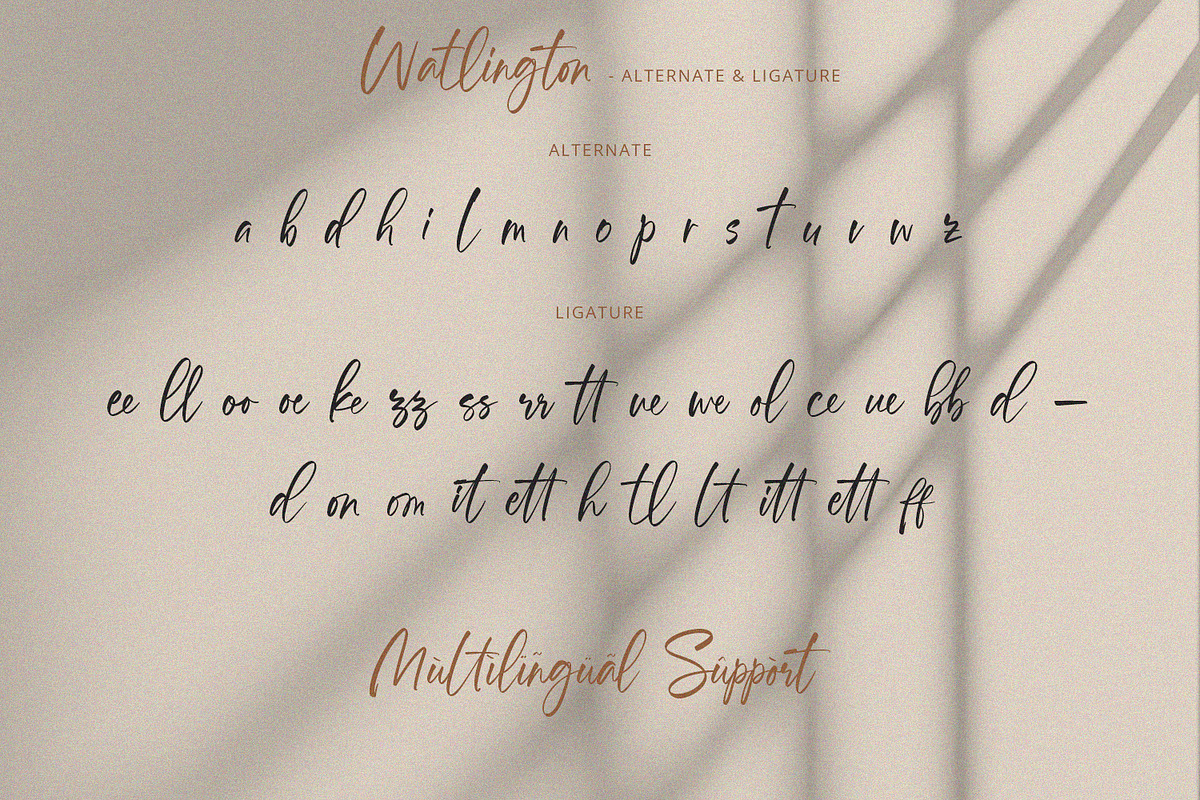 Watlington - ALTERNATE & LIGATURE
ALTERNATE
a b d h i l m n o p r s t u v w z
LIGATURE
ee ll oo oe ke zz ss rr tt ve we ol ce ue bb d –
d on om it ett h tl lt itt ett ff
Mùltìlïñgüãl Sûppòrt